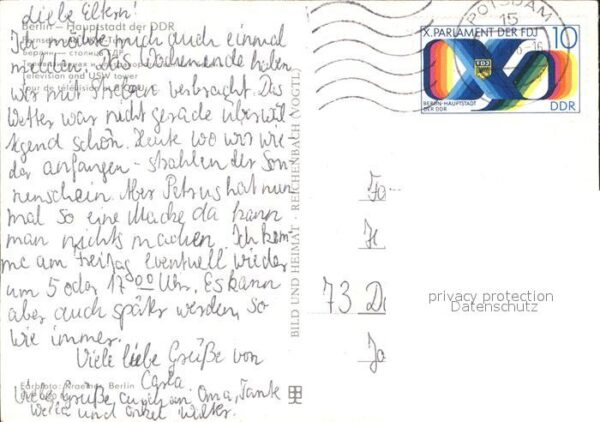 Liebe Eltern!
Berlin – Hauptstadt der DDR
Ich möchte mich auch einmal
melden. Das Wochenende haben
wir mit Stricken verbracht. Das
Television and USW tower
Tour de télévision
Wetter war nicht gerade überwäl-
tigend schön. Heute wo wir wie-
der anfangen – strahlender Son-
nenschein. Aber Petrus hat nun
mal so eine Macke da kann
man nichts machen. Ich kom-
me am Freitag eventuell wieder
um 5 oder 17 00 Uhr. Es kann
aber auch später werden, so
wie immer.
Viele liebe Grüße von
Carla.
Farbfoto: Kraemer, Berlin
Viele Grüße auch an Oma, Tante
und Onkel Walter.
BILD UND HEIMAT · REICHENBACH (VOGTL)
POTSDAM
15
X. PARLAMENT DER FDJ 10
FDJ
BERLIN-HAUPTSTADT
DER DDR
DDR
73 D
privacy protection
Datenschutz